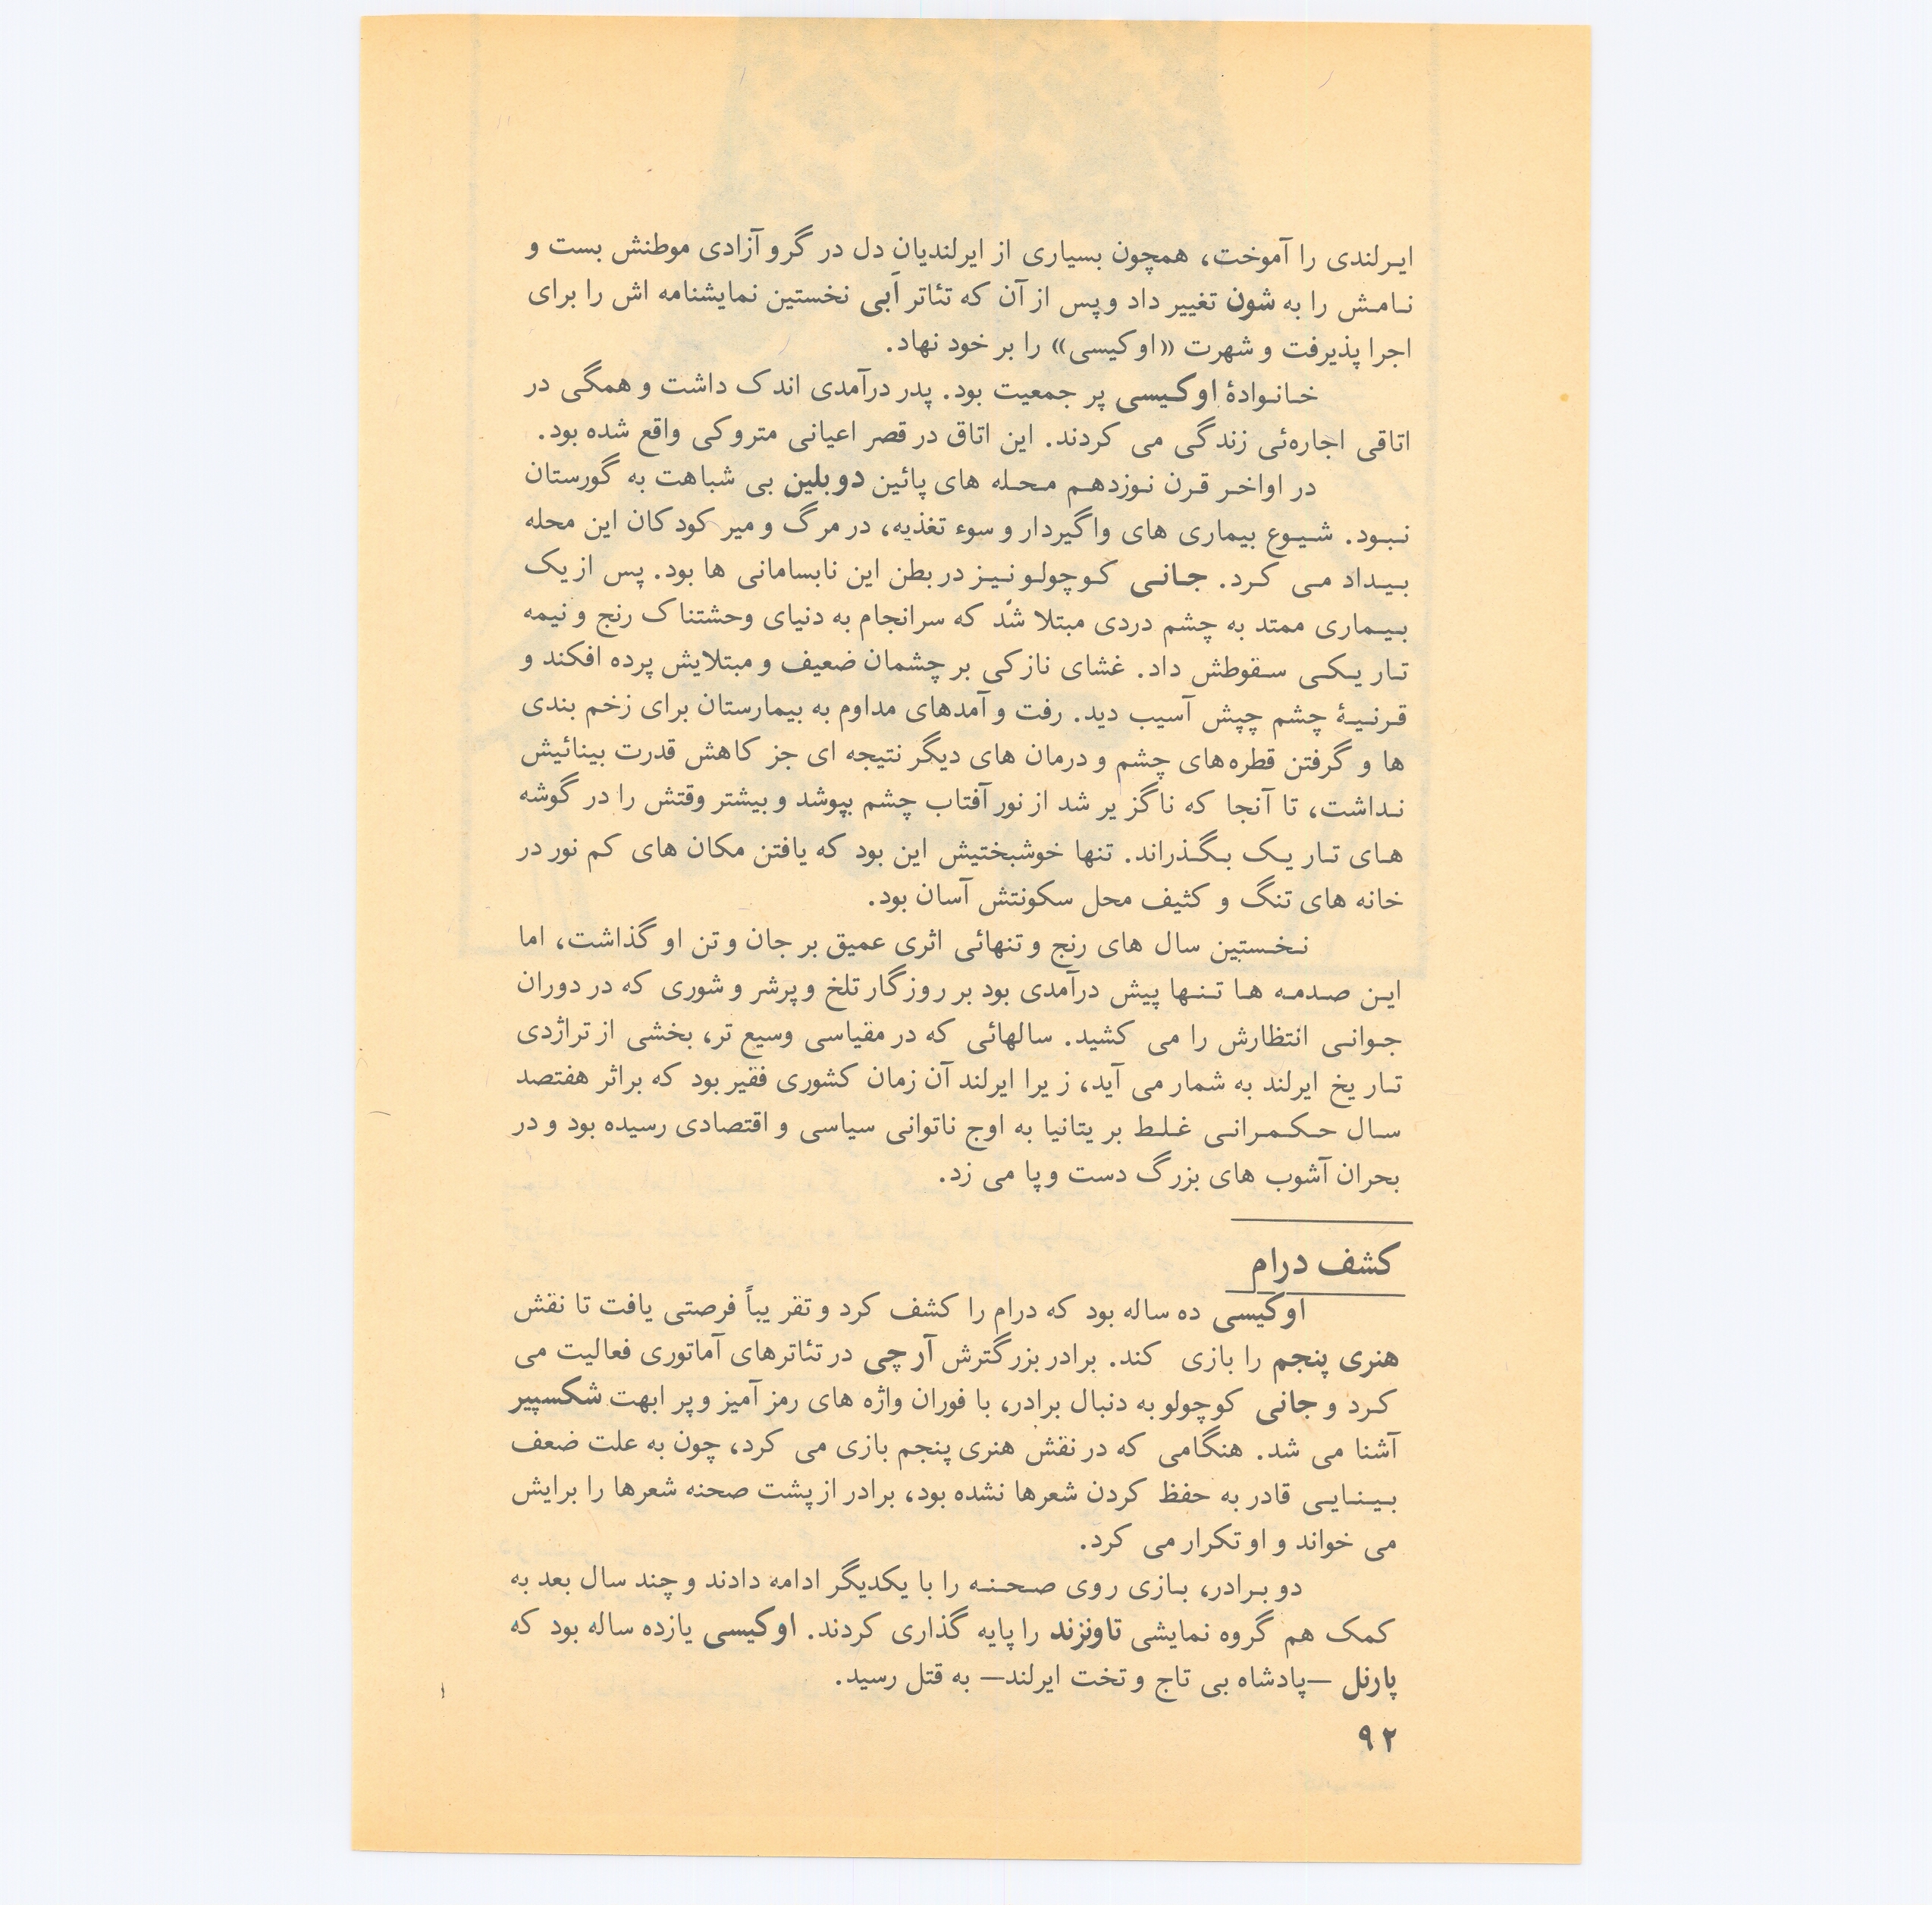 ایرلندی را آموخت، همچون بسیاری از ایرلندیان دل در گرو آزادی موطنش بست و
نامش را به شون تغییر داد و پس از آن که تئاتر اَبی نخستین نمایشنامه اش را برای
اجرا پذیرفت و شهرت «اوکیسی» را بر خود نهاد.
خانوادهٔ اوکیسی پر جمعیت بود. پدر درآمدی اندک داشت و همگی در
اتاقی اجاره‌ئی زندگی می کردند. این اتاق در قصر اعیانی متروکی واقع شده بود.
در اواخر قرن نوزدهم محله های پائین دوبلین بی شباهت به گورستان
نبود. شیوع بیماری های واگیردار و سوء تغذیه، در مرگ و میر کودکان این محله
بیداد می کرد. جانی کوچولو نیز در بطن این نابسامانی ها بود. پس از یک
بیماری ممتد به چشم دردی مبتلا شد که سرانجام به دنیای وحشتناک رنج و نیمه
تاریکی سقوطش داد. غشای نازکی بر چشمان ضعیف و مبتلایش پرده افکند و
قرنیهٔ چشم چپش آسیب دید. رفت و آمدهای مداوم به بیمارستان برای زخم بندی
ها و گرفتن قطره‌های چشم و درمان های دیگر نتیجه ای جز کاهش قدرت بینائیش
نداشت، تا آنجا که ناگزیر شد از نور آفتاب چشم بپوشد و بیشتر وقتش را در گوشه
های تاریک بگذراند. تنها خوشبختیش این بود که یافتن مکان های کم نور در
خانه های تنگ و کثیف محل سکونتش آسان بود.
نخستین سال های رنج و تنهائی اثری عمیق بر جان و تن او گذاشت، اما
این صدمه ها تنها پیش درآمدی بود بر روزگار تلخ و پرشر و شوری که در دوران
جوانی انتظارش را می کشید. سالهائی که در مقیاسی وسیع تر، بخشی از تراژدی
تاریخ ایرلند به شمار می آید، زیرا ایرلند آن زمان کشوری فقیر بود که براثر هفتصد
سال حکمرانی غلط بریتانیا به اوج ناتوانی سیاسی و اقتصادی رسیده بود و در
بحران آشوب های بزرگ دست و پا می زد.
کشف درام
اوکیسی ده ساله بود که درام را کشف کرد و تقریباً فرصتی یافت تا نقش
هنری پنجم را بازی کند. برادر بزرگترش آرچی در تئاترهای آماتوری فعالیت می
کرد و جانی کوچولو به دنبال برادر، با فوران واژه های رمز آمیز و پر ابهت شکسپیر
آشنا می شد. هنگامی که در نقش هنری پنجم بازی می کرد، چون به علت ضعف
بینایی قادر به حفظ کردن شعرها نشده بود، برادر از پشت صحنه شعرها را برایش
می خواند و او تکرار می کرد.
دو برادر، بازی روی صحنه را با یکدیگر ادامه دادند و چند سال بعد به
کمک هم گروه نمایشی تاونزند را پایه گذاری کردند. اوکیسی یازده ساله بود که
پارنل —پادشاه بی تاج و تخت ایرلند— به قتل رسید.
۹۲